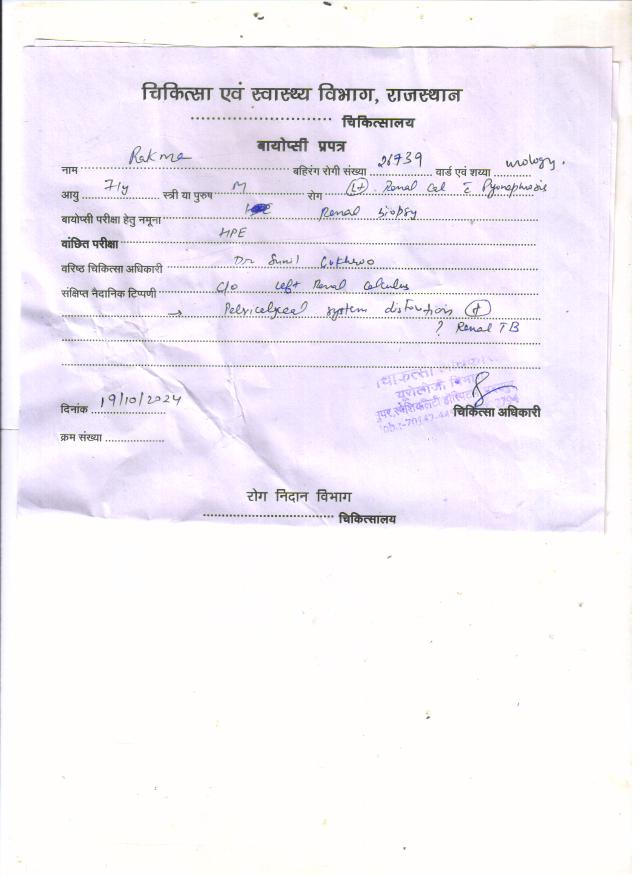 चिकित्सा एवं स्वास्थ्य विभाग, राजस्थान
.............................. चिकित्सालय
बायोप्सी प्रपत्र
नाम Rakma बहिरंग रोगी संख्या 26739 वार्ड एवं शय्या urology.
आयु 71y स्त्री या पुरुष M रोग Lt Renal Cal c Pyonephrosis
बायोप्सी परीक्षा हेतु नमूना Renal biopsy
वांछित परीक्षा HPE
वरिष्ठ चिकित्सा अधिकारी Dr Sunil
संक्षिप्त नैदानिक टिप्पणी C/o Left Renal Calculus
→ Pelvicalyceal system distortion +
? Renal TB
यूरोलॉजी
दिनांक 19/10/2024 चिकित्सा अधिकारी
क्रम संख्या ..................
रोग निदान विभाग
.............................. चिकित्सालय